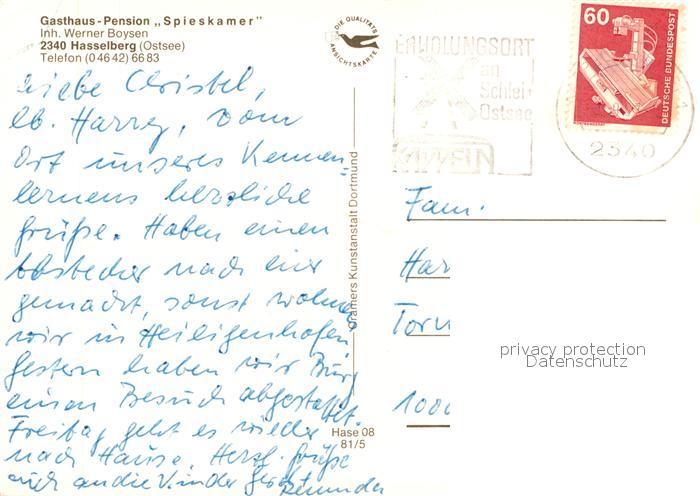 Gasthaus-Pension „Spieskamer"
Inh. Werner Boysen
2340 Hasselberg (Ostsee)
Telefon (0 46 42) 66 83
Liebe Christel,
lb. Harry, vom
Ort unseres Kennen-
lernens herzliche
Grüße. Haben einen
Abstecher nach hier
gemacht, sonst wohnen
wir in Heiligenhafen
Gestern haben wir Burg
einen Besuch abgestattet.
Freitag geht es wieder
nach Hause. Herzl. Grüße
auch an die Kinder
DIE QUALITÄTS
ANSICHTSKARTE
Cramers Kunstanstalt Dortmund
Hase 08
81/5
ERHOLUNGSORT
an
Schlei +
Ostsee
KAPPELN
2340
60
DEUTSCHE BUNDESPOST
Fam.
Har
Torn
1000
privacy protection
Datenschutz